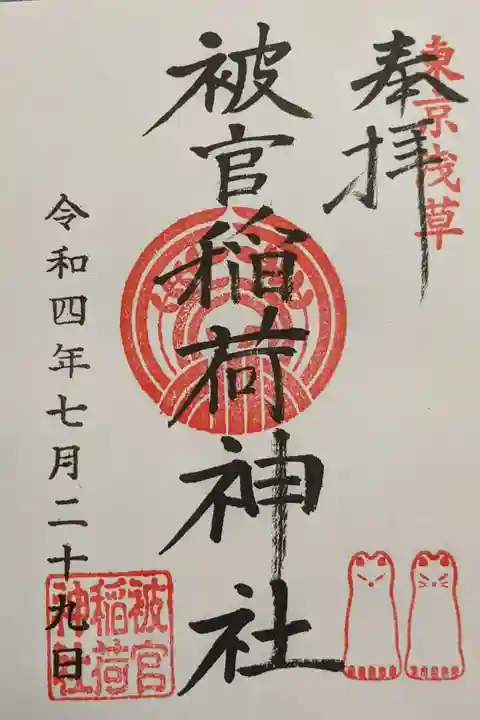 奉拝
東京浅草
被官稲荷神社
令和四年七月二十九日
被官
稲荷
神社